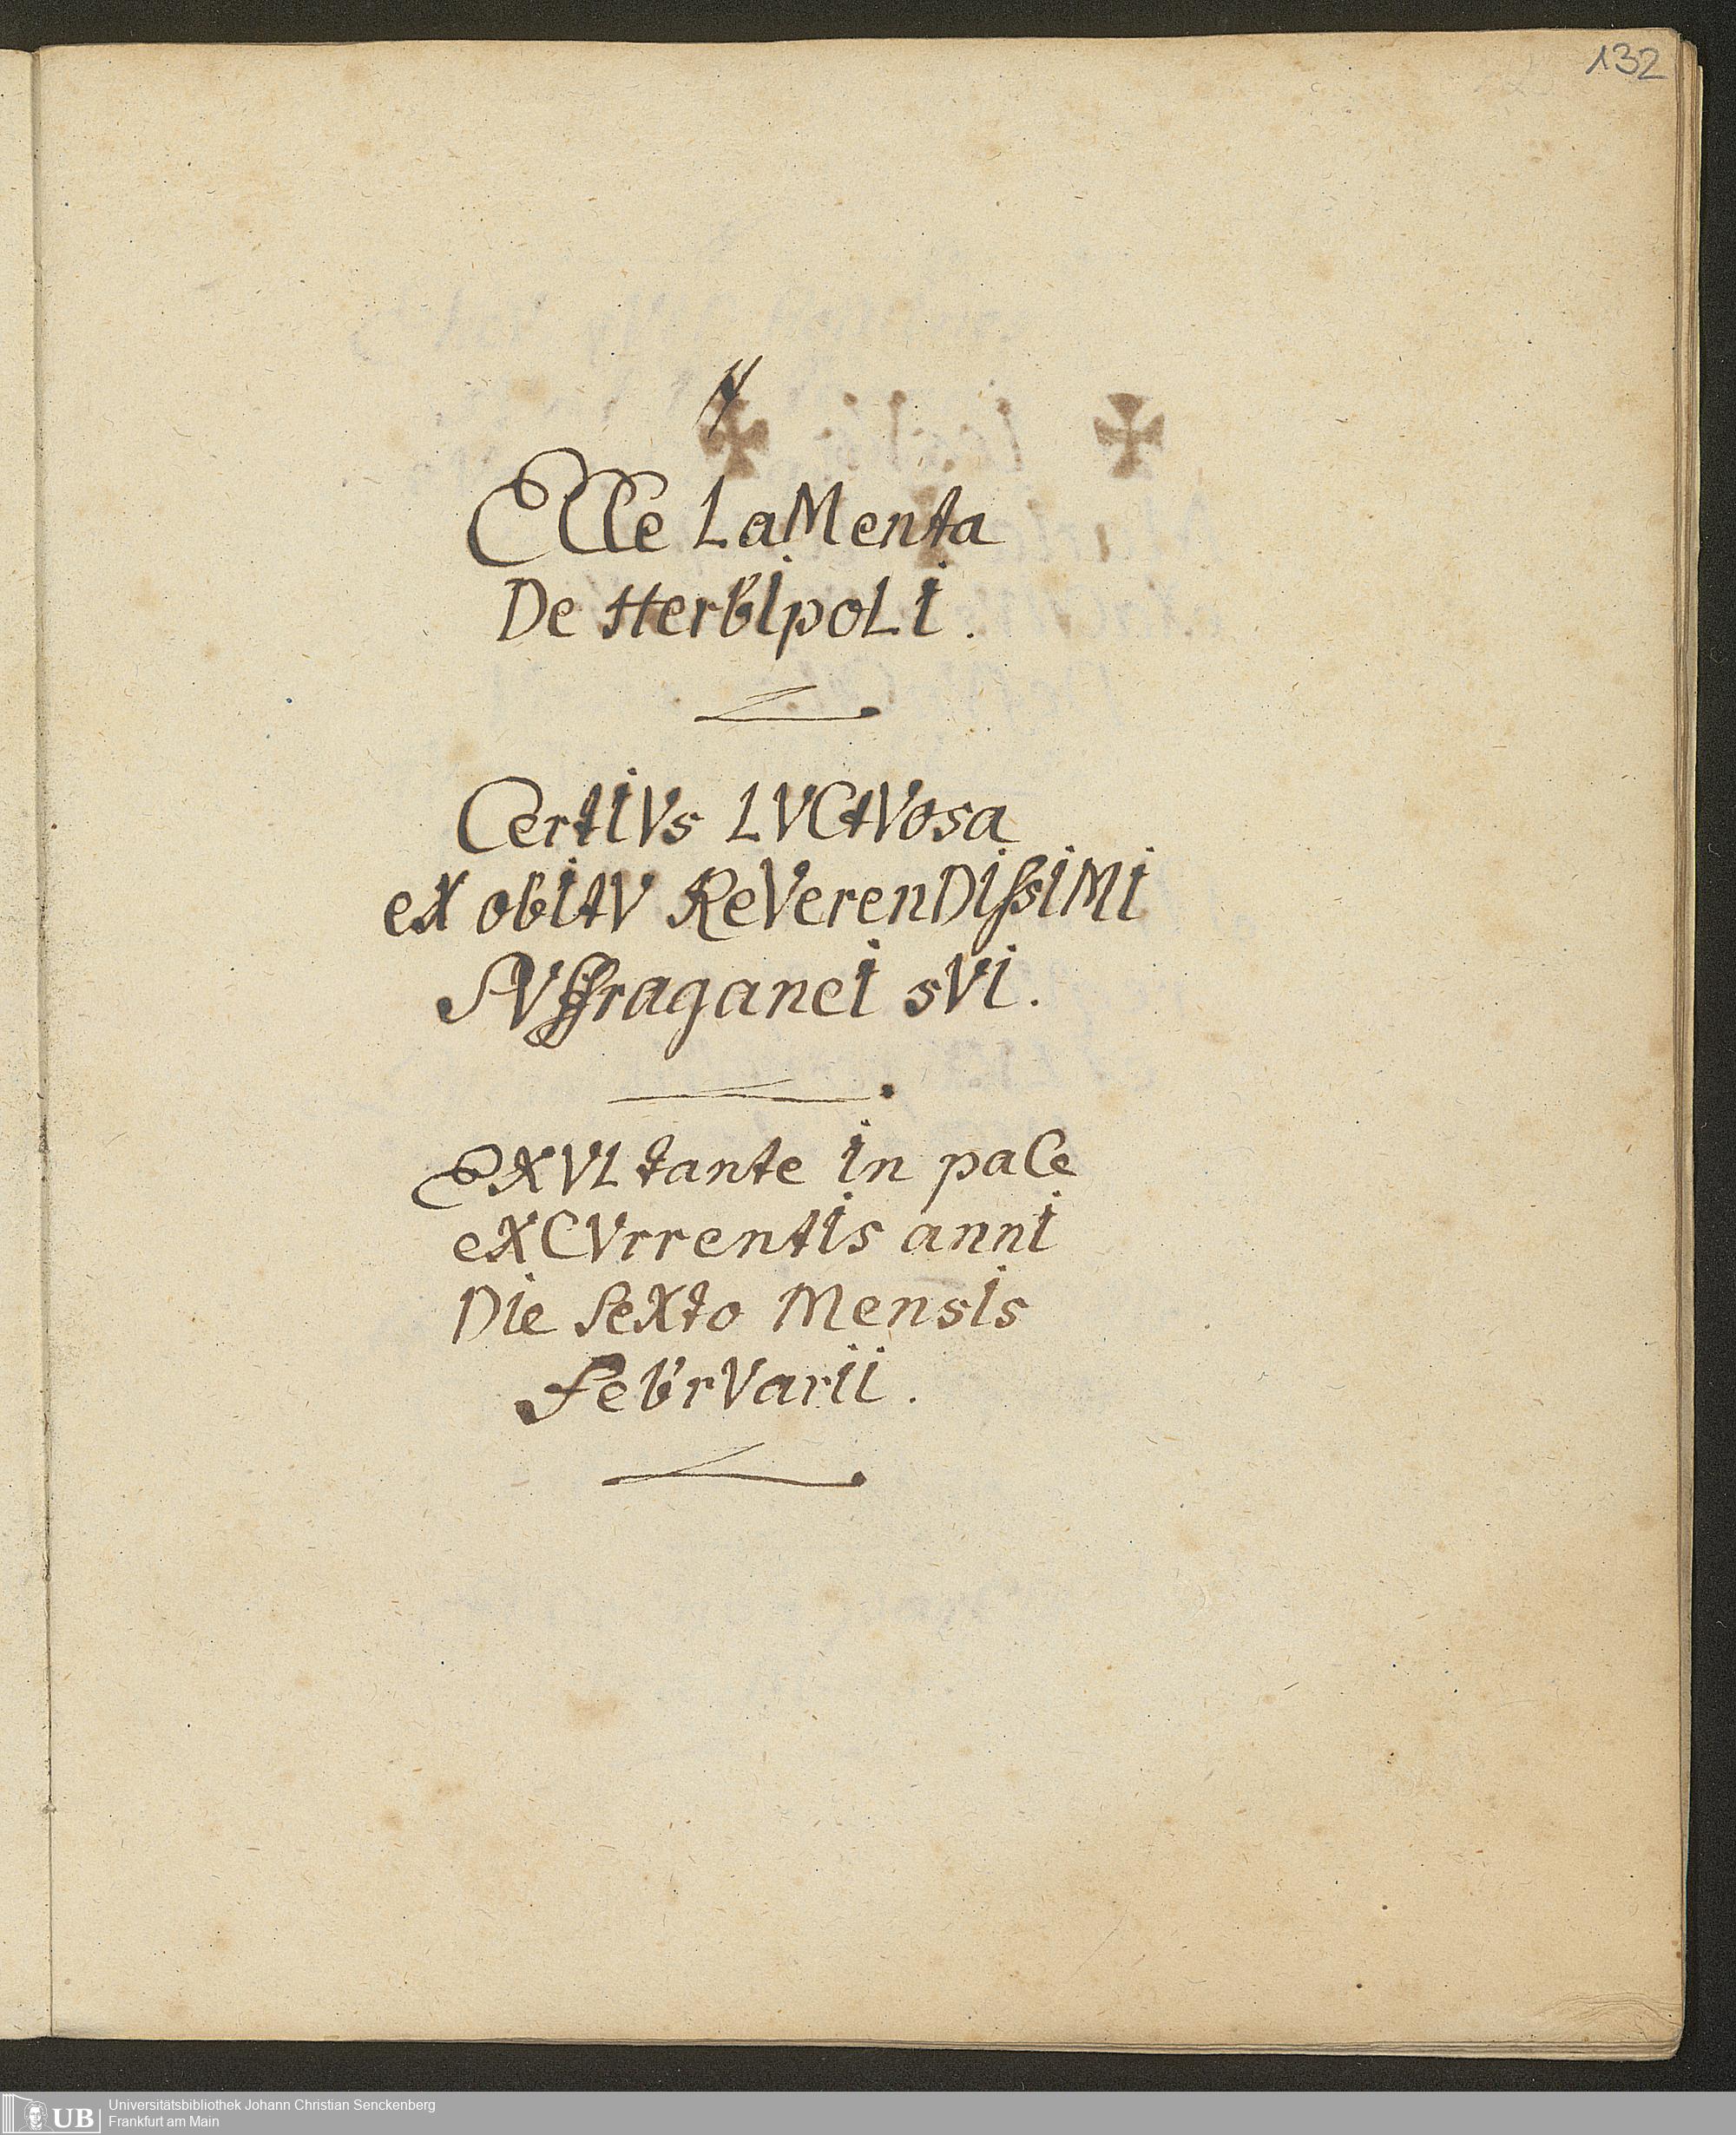 132
ECCe LaMenta
De HerbIpoLI.
CertIVs LVCtVosa
eX obItV ReVerenDIssIMI
SVffraganeI sVI.
EXVLtante In paCe
eXCVrrentIs annI
DIe seXto MensIs
FebrVarII.
UB
Universitätsbibliothek Johann Christian Senckenberg
Frankfurt am Main